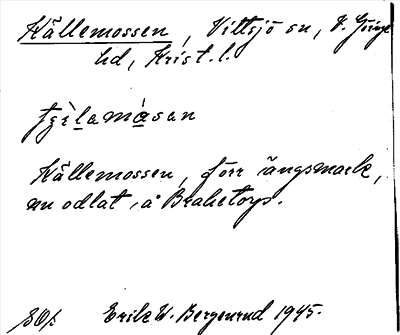 Källemossen, Vittsjö sn, V. Göinge
hd, Krist. l.
Källemossen, förr ängsmark,
nu odlat, å Braketorp.
Erik W. Bergenrud 1945.